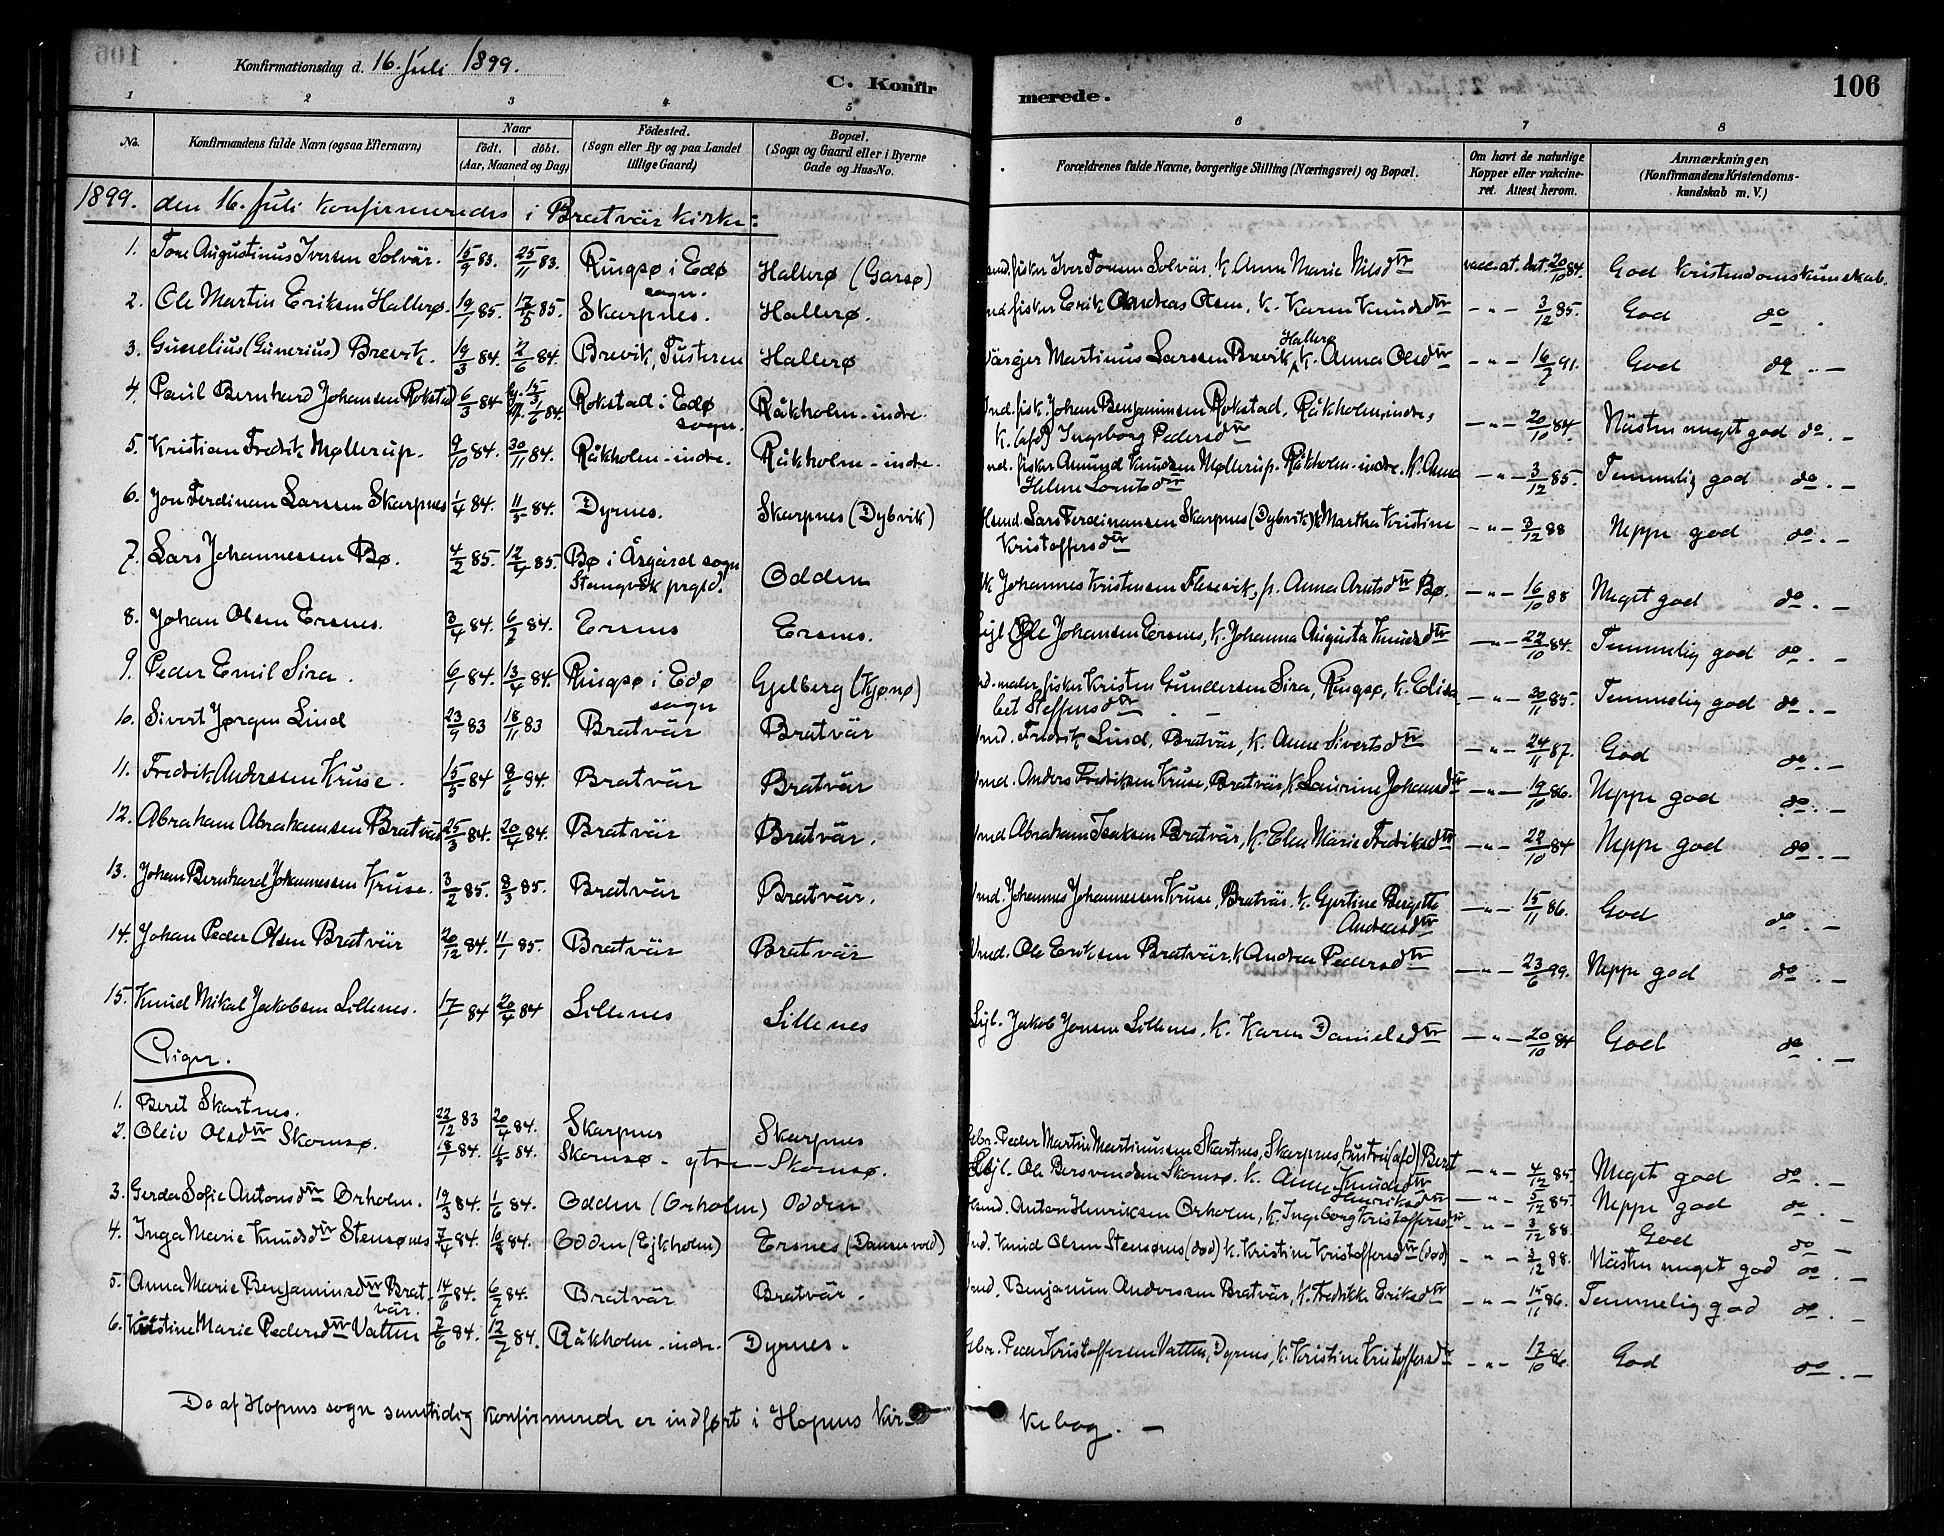 106
Konfirmationsdag d. 16. Juli 1899.
C. Konfirmerede.
1 2 3 4 5 6 7 8
No. Konfirmandens fulde Navn (ogsaa Efternavn) Naar født. døbt. (Aar, Maaned og Dag) Fødested. (Sogn eller By og paa Landet tillige Gaard) Bopæl. (Sogn og Gaard eller i Byerne Gade og Hus-No. Forældrenes fulde Navne, borgerlige Stilling (Næringsvei) og Bopæl. Om havt de naturlige Kopper eller vakcineret. Attest herom. Anmærkninger, (Konfirmandens Kristendomskundskab m. V.)
1899. den 16. Juli konfirmeredes i Bratvär kirke:
1. Tore Augustinus Iversen Solvär. 15/9 83. 25/11 83. Ringsø i Edø sogn. Hallerø (Garsø) fisker Iver Toresen Solvär, k. Anne Marie Nilsdtr vacc. at. dat. 20/10 84. God kristendomskunskab.
2. Ole Martin Eriksen Hallerø. 19/1 85. 17/5 85. Skarpnes. Hallerø. fisker Erik Andreas Olsen, k. Karen Knudsdtr -"- 3/12 85. God do.
3. Gunelius (Gunerius) Brevik. 19/3 84. 2/6 84. Brevik, Tusteren Hallerø Martinus Larssen Brevik, Hallerø k. Anna Olsdtr -"- 16/7 91. God do.-
4. Paul Bernhard Johansen Rokstad 6/3 84 15/3 1/6 84. Rokstad i Edø sogn. Råkholm-indre. Ind. fisk. Johan Benjaminsen Rokstad, Råkholm, indre, k. (afd) Ingeborg Pedersdtr -"- 20/10 84. Nästen meget god do.-
5. Kristian Fredrik Møllerup. 9/10 84. 30/11 84. Råkholm-indre. Råkholm-indre. fisker Amund Knudsen Møllerup. Råkholm-indre. k. Anna Helene Lorntsdtr -"- 3/12 85. Temmelig god do.-
6. Jon Ferdinan Larssen Skarpnes 1/4 84. 11/5 84. Dyrnes. Skarpnes (Dybvik) Lars Ferdinansen Skarpnes (Dybvik) k. Martha Kristine Kristoffersdtr -"- 3/12 88 Neppe god do.-
7. Lars Johannessen Bø. 4/2 85. 12/4 85. Bø i Åsgård sogn Stangvik prgld. Odden Johannes Kristensen Flesevik, p. Anna Arntsdtr Bø. -"- 16/10 88 Meget god do.-
8. Johan Olsen Ersnes. 3/4 84. 6/7 84. Ersnes Ersnes. Ole Johansen Ersnes, k. Johanna Augusta Knudsdtr -"- 22/10 84. Temmelig god do.-
9. Peder Emil Sira. 6/1 84. 13/4 84. Ringsø i Edø sogn Gjelberg (Kjønø) maler fisker Kristen Gundersen Sira, Ringsø, k. Elisabet Steffensdtr -"- 30/11 85. Temmelig god do.-
10. Sivert Jørgen Lind 23/9 83 18/11 83 Bratvär Bratvär Fredrik Lind, Bratvär, k. Anne Sivertsdtr -"- 24/11 87. God do.-
11. Fredrik Anderssen Kruse. 15/5 84 8/6 84. Bratvär Bratvär Anders Fredriksen Kruse, Bratvär, k. Laurine Johansdtr -"- 19/10 86. Neppe god do.-
12. Abraham Abrahamsen Bratvär 25/3 84. 20/4 84. Bratvär Bratvär. Abraham Isaksen Bratvär, k. Elen Marie Fredriksdtr -"- 22/10 84 Neppe god do.-
13. Johan Bernhard Johannessen Kruse. 3/2 85. 8/3 85. Bratvär Bratvär. Johannes Johannessen Kruse, Bratvär. k. Gjertine Bergitte Andreasdtr -"- 15/11 86. God do.-
14. Johan Peder Olsen Bratvär 20/12 84. 11/1 85. Bratvär Bratvär Ole Eriksen Bratvär. k Andrea Pedersdtr -"- 23/6 99. Neppe god do.-
15. Knud Mikal Jakobsen Lillenes. 17/1 84 20/4 84 Lillenes Lillenes Jakob Jonsen Lillenes, k. Karen Danielsdtr -"- 20/10 84 God do.-
Piger.
1. Beret Skartnes. 22/12 83 20/4 84. Skarpnes Skarpnes Peder Martin Martinussen Skartnes, Skarpnes, hustru (afd) Beret Henriksdtr -"- 4/12 85. Meget god do.-
2. Oleiv Olsdtr Skomsø. 18/1 84. 11/5 84. Skomsø-ytre Skomsø. Ole Bersvendsen Skomsø. k. Anne Knudsdtr -"- 5/12 85. Neppe god do.-
3. Gerda Sofie Antonsdtr Orholm. 19/3 84. 1/6 84. Odden (Orholm) Odden Anton Henriksen Orholm, k. Ingeborg Kristoffersdtr -"- 3/12 88. God do.-
4. Inga Marie Knudsdtr Stensønes 7/4 84. 10/8 84. Odden (Ejkholm) Ersnes (Dansevold) Knud Olsen Stensønes (død) k. Kristine Kristoffersdtr (død) -"- 3/12 88. Nästen meget god do.-
5. Anna Marie Benjaminsdtr Bratvär. 14/6 84. 6/7 84. Bratvär Bratvär. Benjamin Anderssen Bratvär, k. Fredrikke Eriksdtr -"- 15/11 86. Temmelig god do.-
6. Kristine Marie Pedersdtr Vatten 7/6 84. 12/7 84. Råkholm-indre. Dyrnes. Peder Kristoffersen Vatten, Dyrnes, k. Kristine Kristoffersdtr -"- 17/10 86. God do.-
De af Hopens sogn samtidig konfirmerede er indført i Hopens kirkebog. -